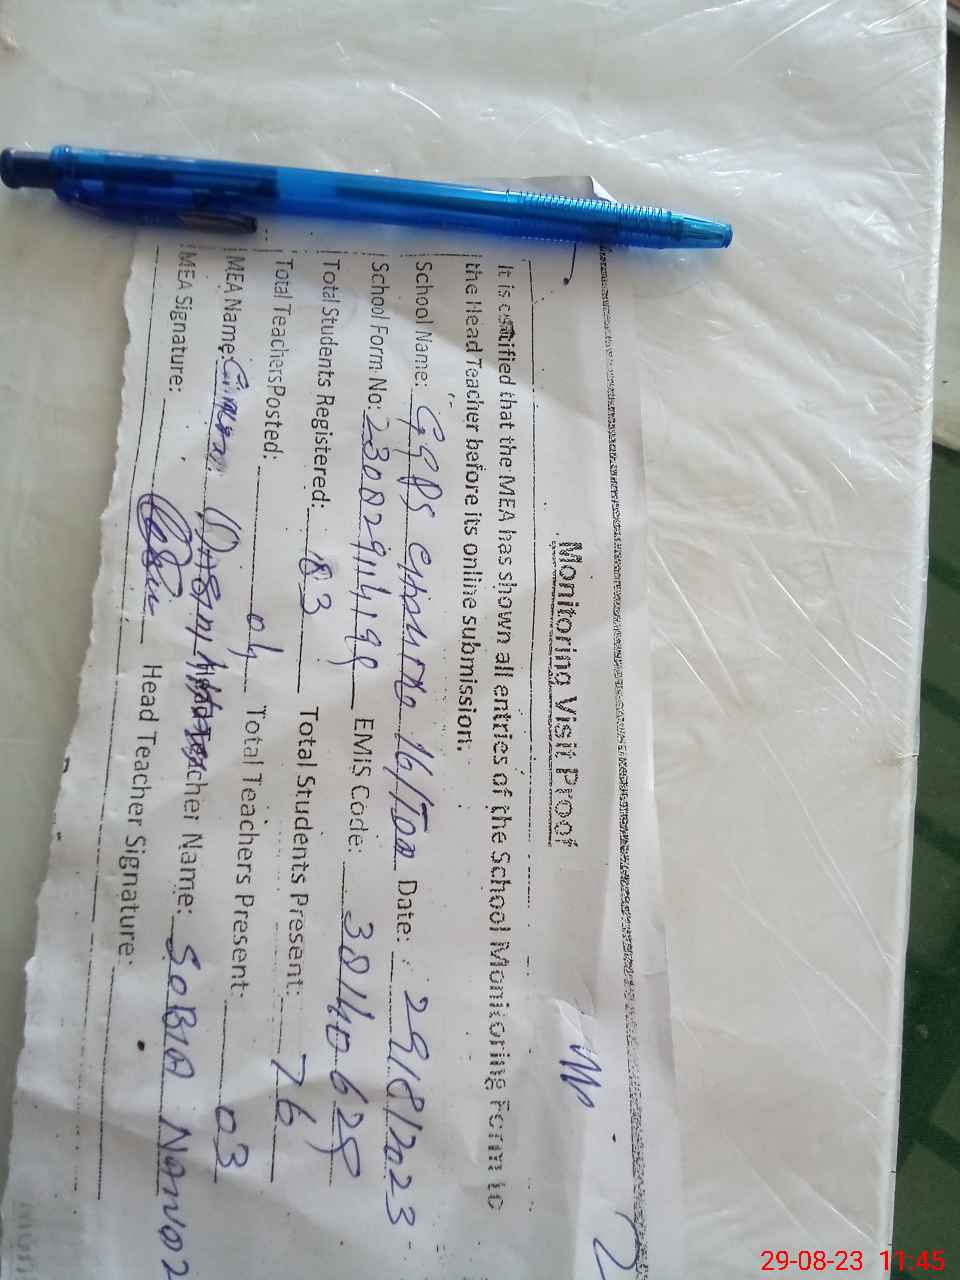 Monitoring Visit Proof
It is certified that the MEA has shown all entries of the School Monitoring Form to
the Head Teacher before its online submission.
School Name: GGPS 16/ Date: 29/8/2023
School Form No: EMIS Code: 38140628
Total Students Registered: 83 Total Students Present: 76
Total Teachers Posted: 04 Total Teachers Present: 03
MEA Name: Head Teacher Name: SOBIA
MEA Signature: Head Teacher Signature:
29-08-23 11:45